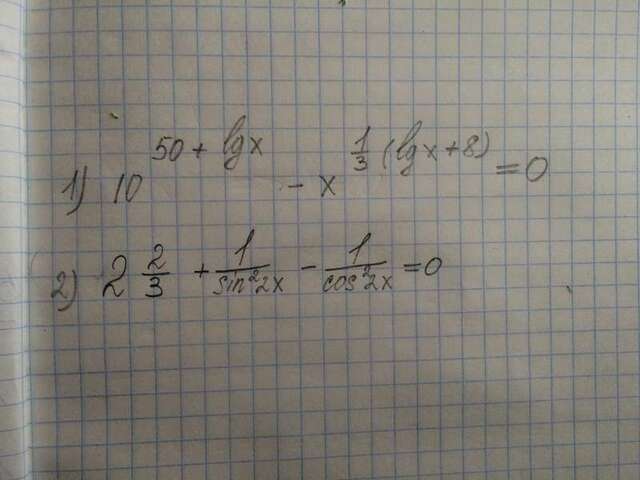 1) 10^(50 + lg x) - x^(1/3 (lg x + 8)) = 0
2) 2 2/3 + 1/sin²2x - 1/cos²2x = 0